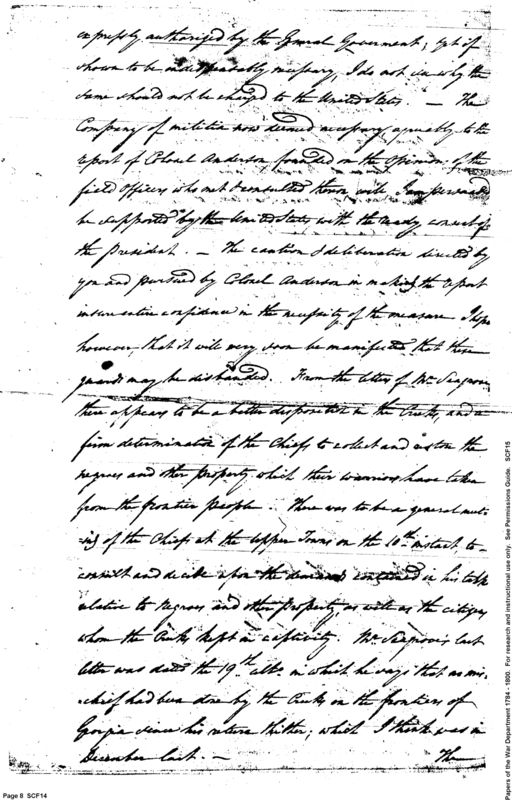 expressly authorized by the General Government; yet if
shown to be indispensably necessary, I do not see why the
same should not be charged to the United States. — The
Company of militia now deemed necessary agreeably to the
report of Colonel Anderson founded on the Opinion of the
field Officers who met & consulted thereon will I am persuaded
be supported by the United States with the ready consent of
the President. — The caution & deliberation directed by
you and pursued by Colonel Anderson in making the report
insure entire confidence in the necessity of the measure I hope
however, that it will very soon be manifested that these
guards may be disbanded. From the letters of Mr. Seagrove
there appears to be a better disposition in the Creeks, and a
firm determination of the Chiefs to collect and restore the
negroes and other property which their warriors have taken
from the frontier people. There was to be a general meet-
-ing of the Chiefs at the Upper Towns on the 10th instant, to
consult and decide upon the demands contained in his talk
relative to negroes and other property, as well as the citizens
whom the Creeks kept in captivity. Mr. Seagrove's last
letter was dated the 19th ulto. in which he says that no mis-
-chief had been done by the Creeks on the frontiers of
Georgia since his return thither; which I think was in
December last. — The
Page 8 SCF14
Papers of the War Department 1784 - 1800. For research and instructional use only. See Permissions Guide. SCF15